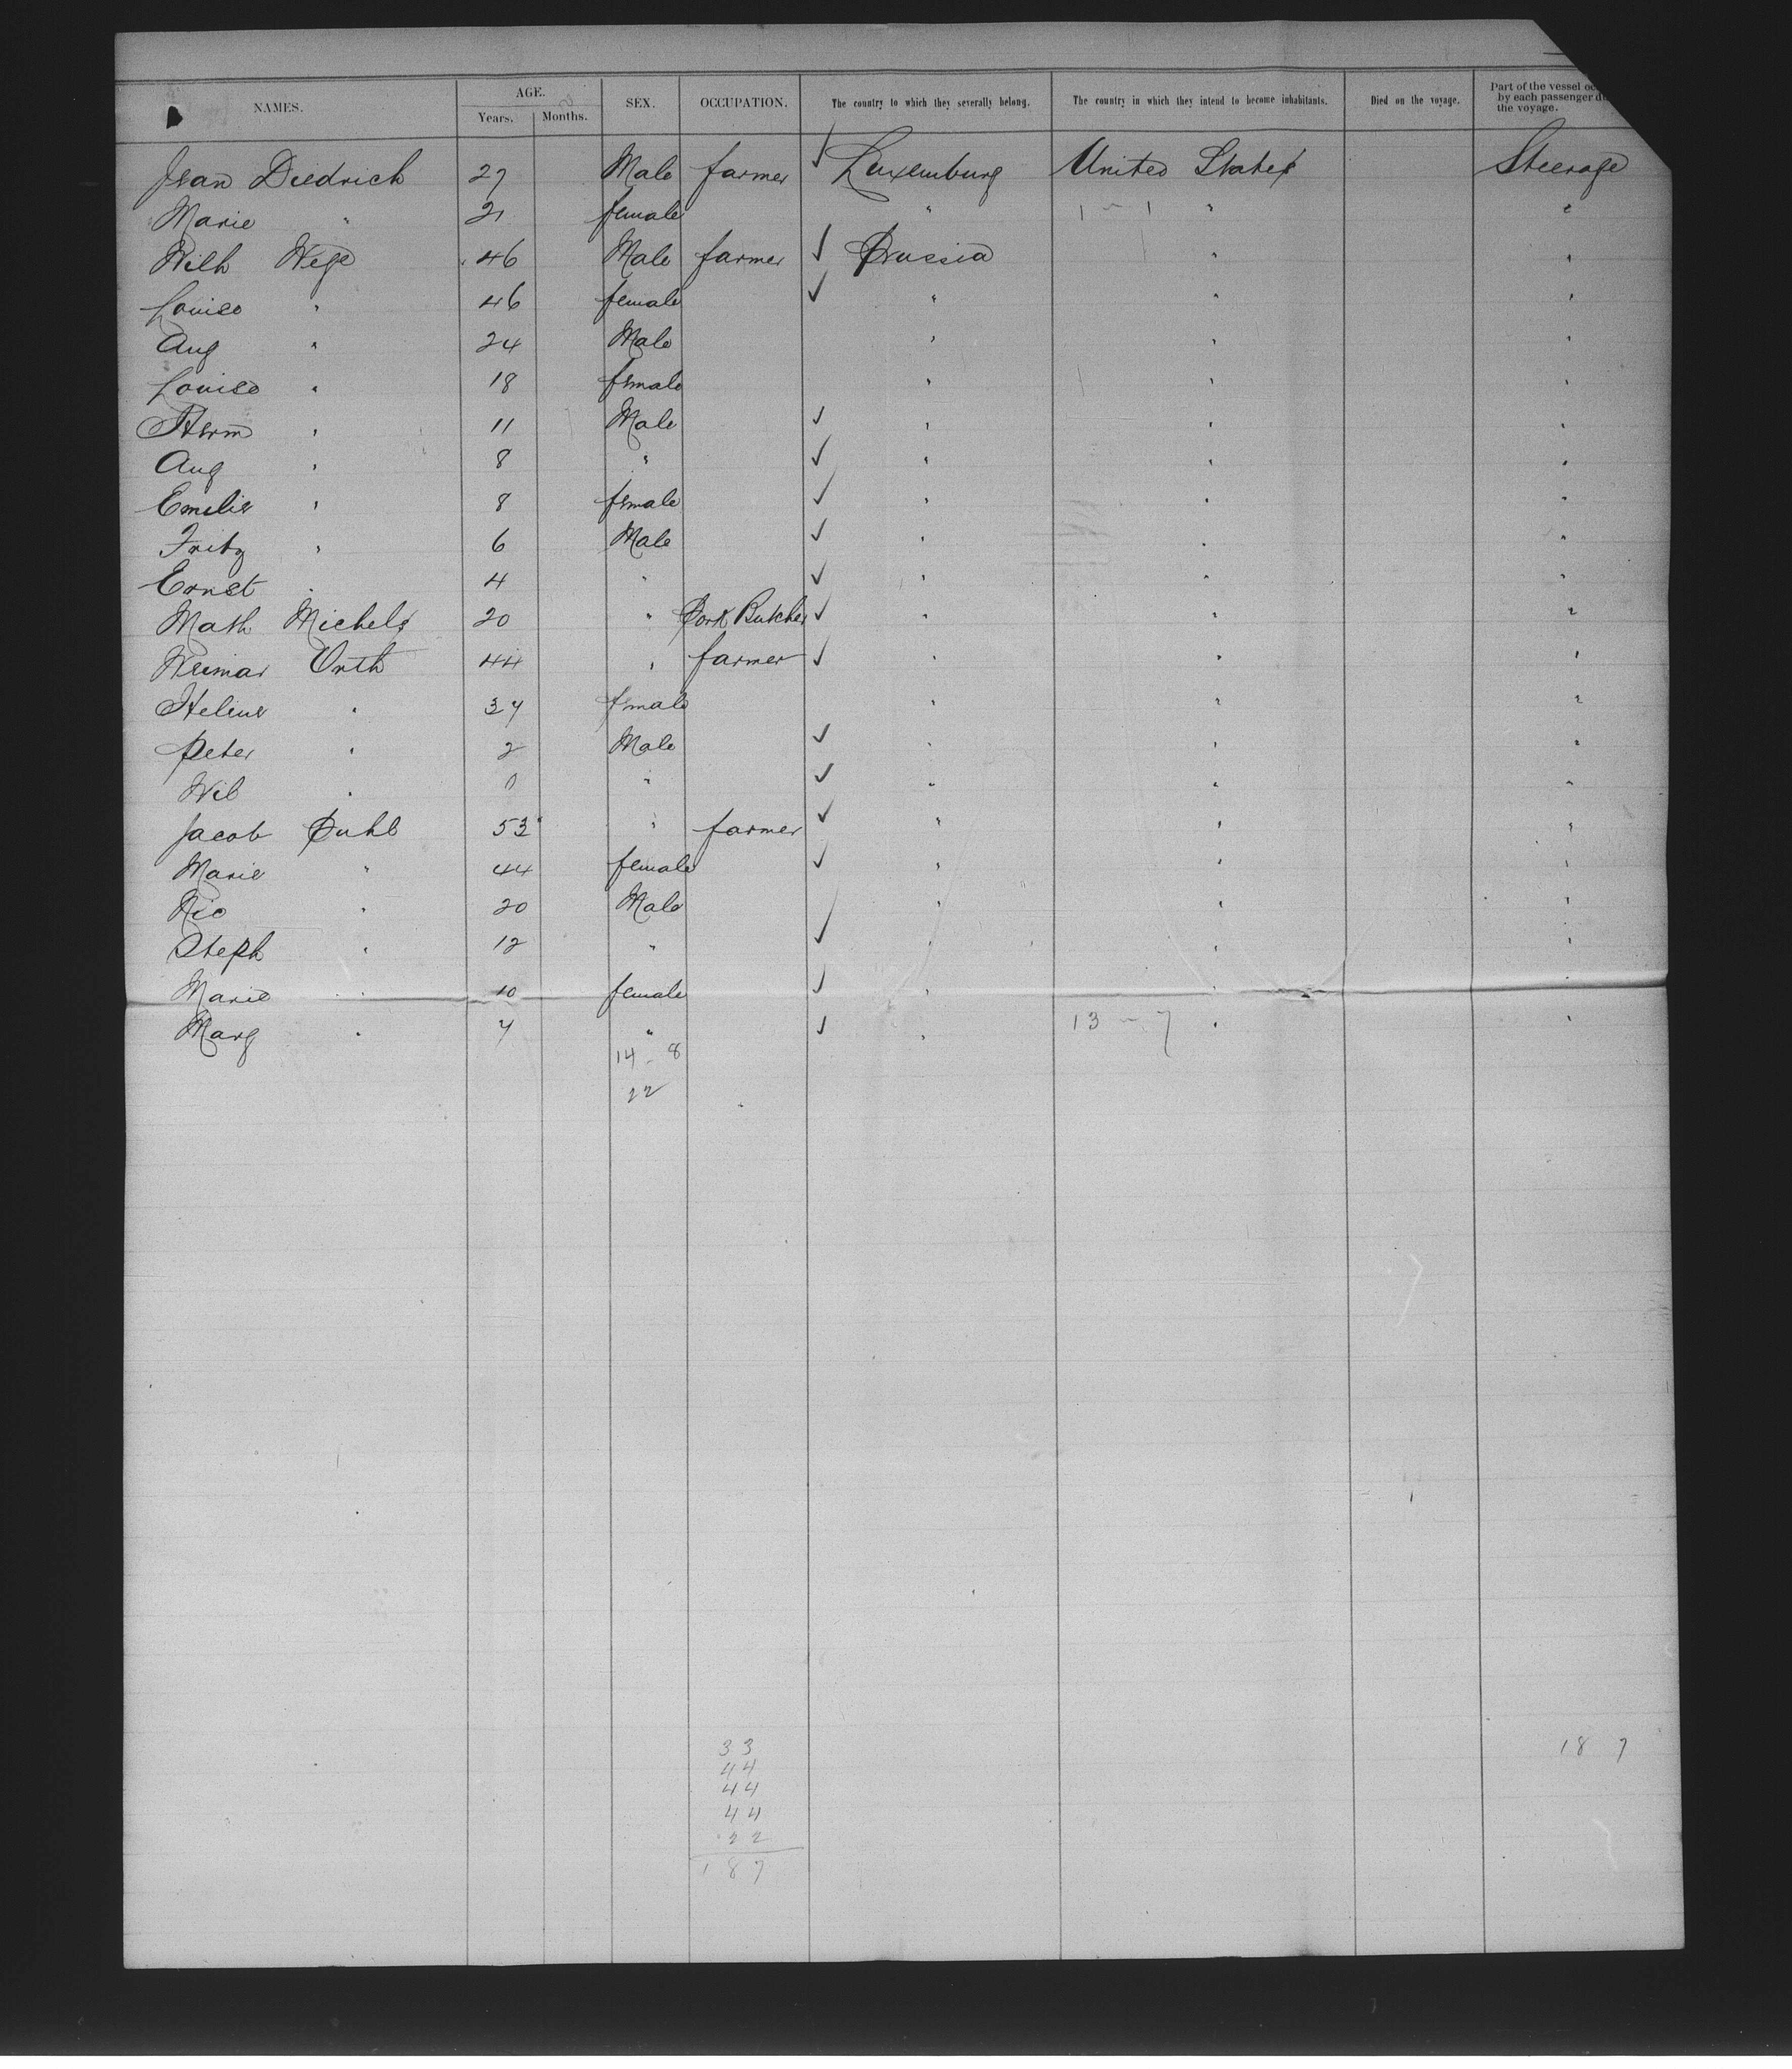 NAMES. AGE. Years. Months. SEX. OCCUPATION. The country to which they severally belong. The country in which they intend to become inhabitants. Died on the voyage. Part of the vessel by each passenger the voyage.
Jean Diedrich 27 Male farmer ✓ Luxemburg United States Steerage
Marie " 21 female " 1 - 1 " "
Wilh Wege 46 Male farmer ✓ Prussia " "
Louise " 46 female ✓ " " "
Aug " 24 Male " " "
Louise " 18 female " " "
Herm " 11 Male ✓ " " "
Aug " 8 " ✓ " " "
Emilie " 8 female ✓ " " "
Fritz " 6 Male ✓ " " "
Ernst " 4 " ✓ " " "
Math Michels 20 " Pork Butcher ✓ " " "
Weimar Orth 44 " farmer ✓ " " "
Helene " 37 female " " "
Peter " 2 Male ✓ " " "
Wil " 0 " ✓ " " "
Jacob Puhl 53 " farmer ✓ " " "
Marie " 44 female ✓ " " "
Nic " 20 Male " " "
Steph " 12 " ✓ " " "
Marie " 10 female ✓ " " "
Marg " 7 " ✓ " 13 - 7 " "
14 - 8
22
33 187
44
44
44
22
187